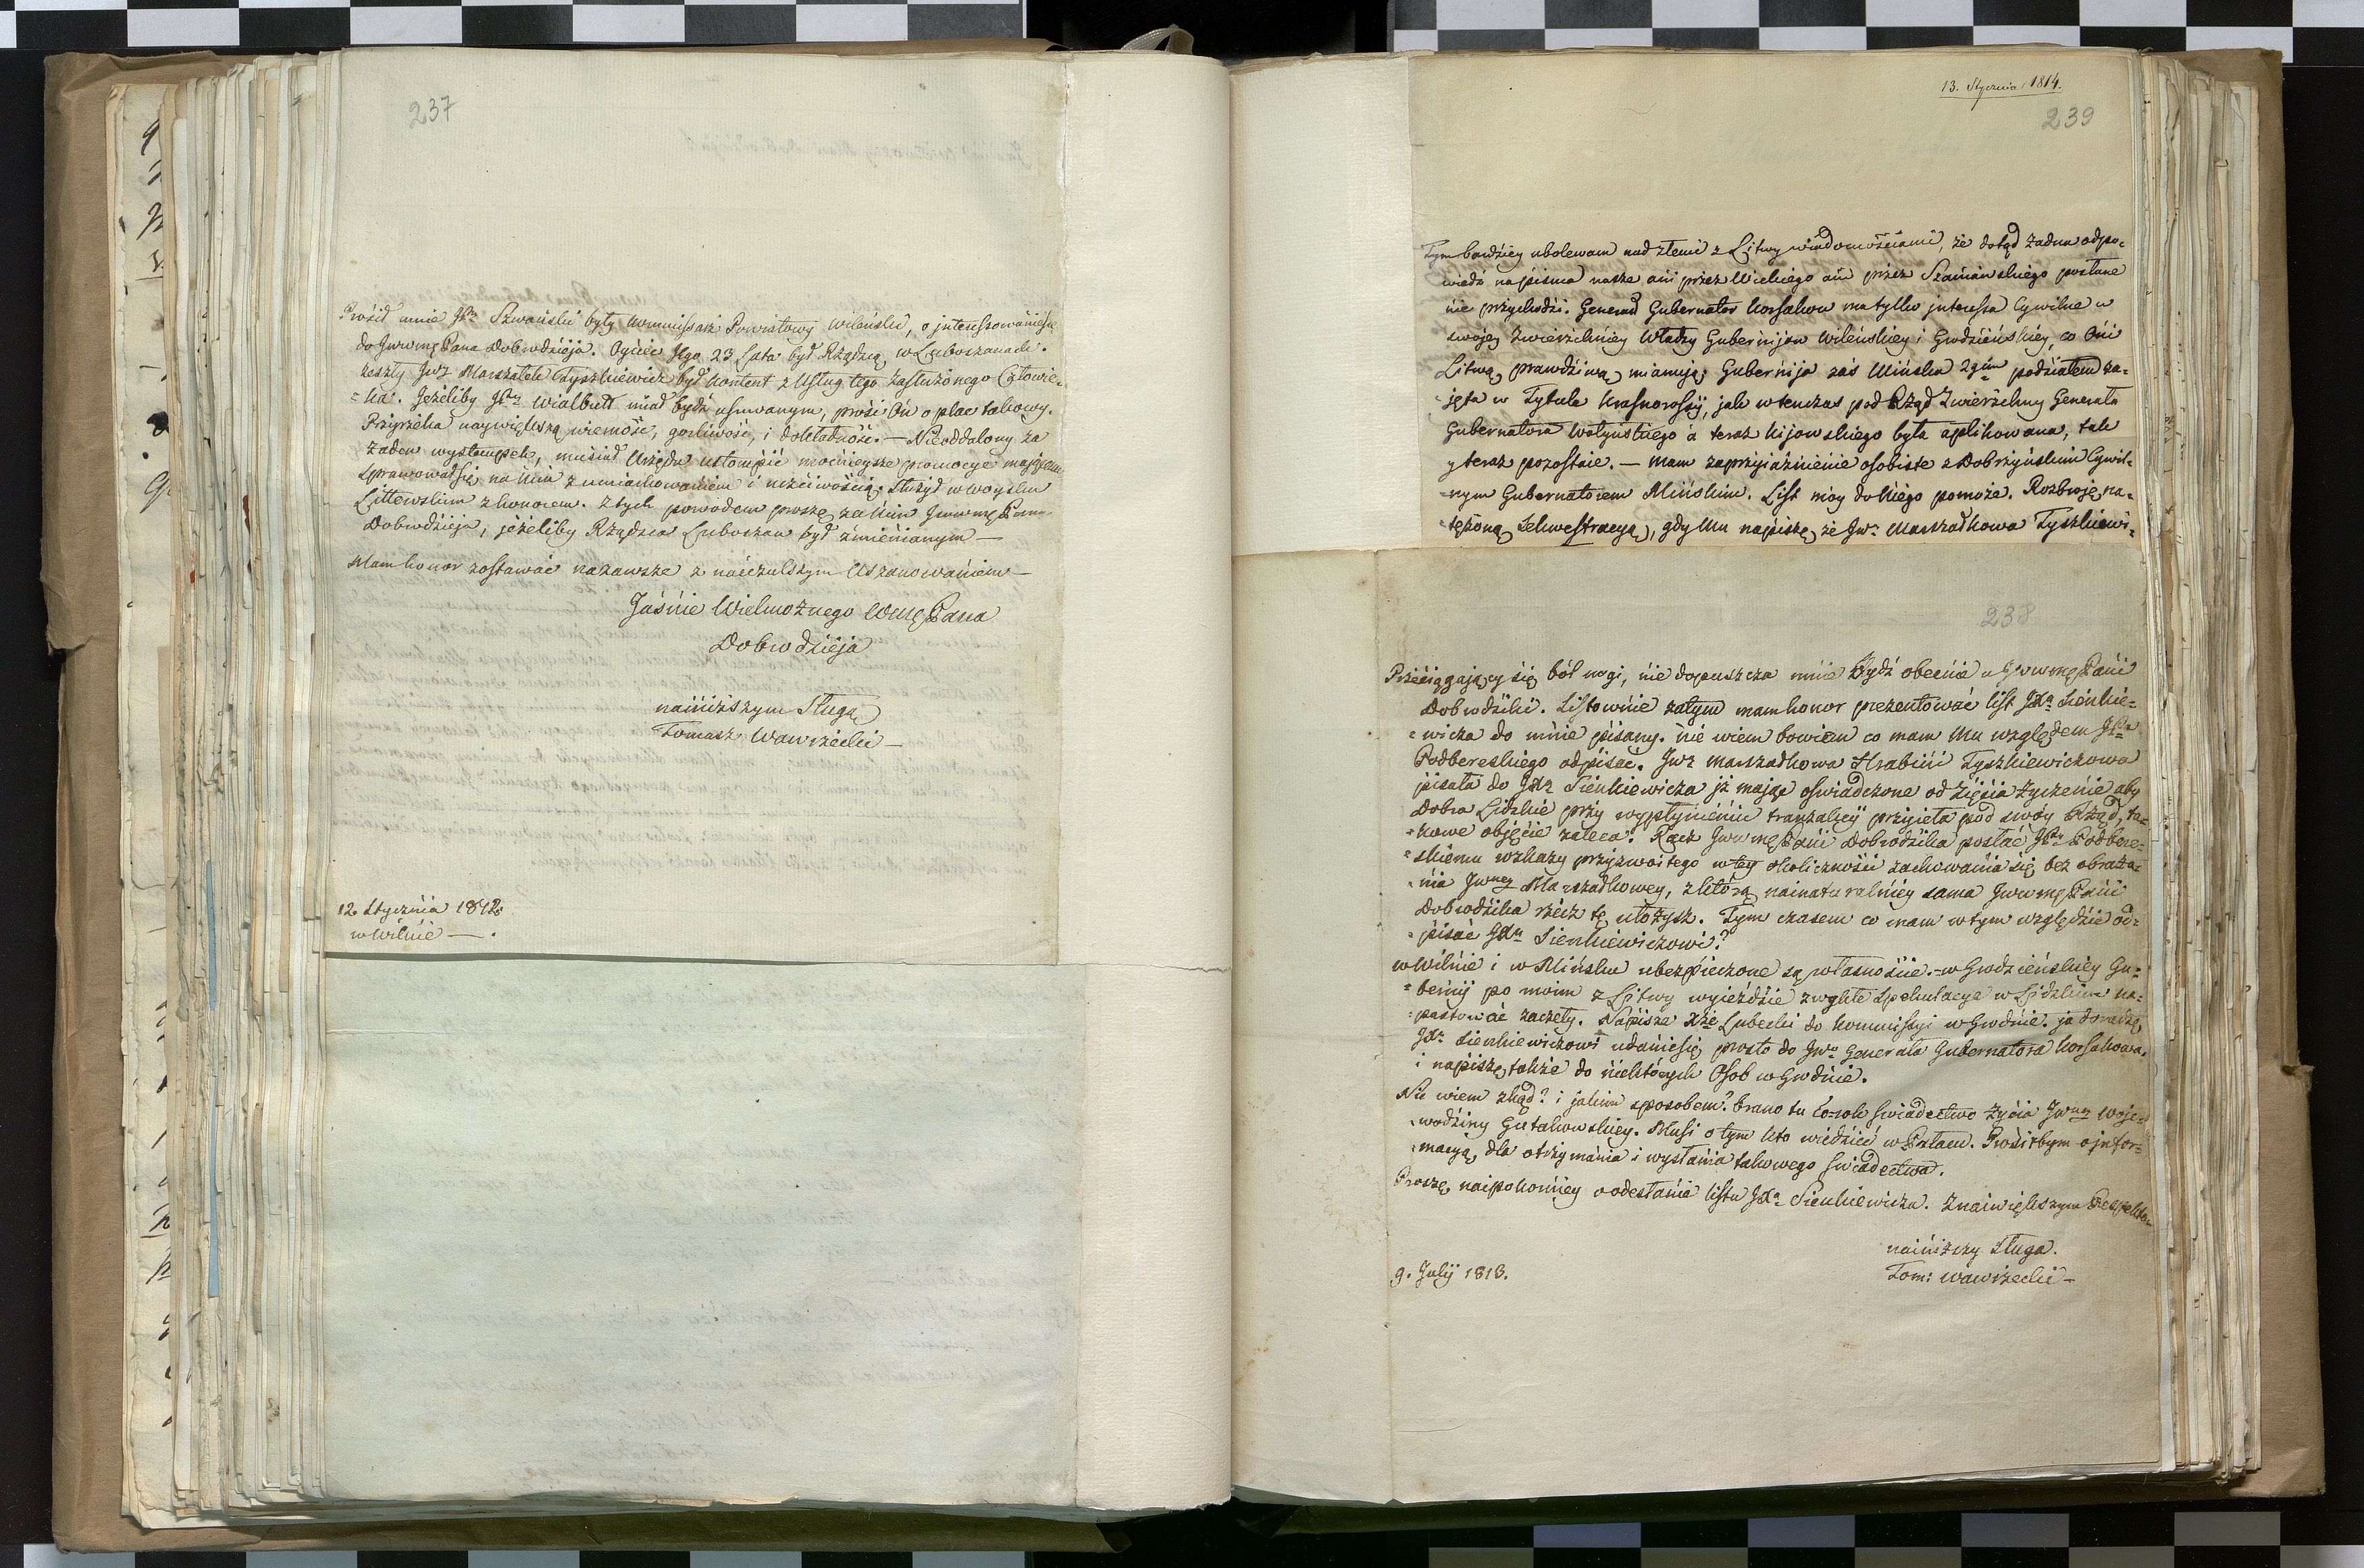 237
Prosił mnie JPn Szwański były Kommissarz Powiatowy Wileński, o interessowanie się
do Jwwmę Pana Dobrodzieja. Ojciec Jego 23 Lata był Rządzcą w Luboszanach.
zeszły Jwz Marszałek Tyszkiewicz był kontent z Usług tego zasłużonego Człowie-
=ka. Jeżeliby JPn Wialbutt miał bydź usuwanym, prosi On o plac takowy.
Przyrzeka naywiększą wierność, gorliwość, i dokładność. — Nieoddalony za
żaden występek, musiał Urzędu ustąpić mocnieysze promocye mającemu
sprawował się na Nim z umiarkowaniem i uczciwością. Służył w woysku
Littewskim z honorem. z tych powodów proszę za Nim Jwwmę Pana
Dobrodzieja, jeżeliby Rządzca Luboszan był zmienianym —
Mam honor zostawać nazawsze z naiczulszym Uszanowaniem —
Jaśnie Wielmożnego WMę Pana
Dobrodzieja
nainiższym Sługą
Tomasz Wawrzecki —
12. Stycznia 1812.
w Wilnie — .
13. Stycznia 1814.
239
Tym bardziey ubolewam nad złemi z Litwy wiadomościami, że dotąd żadna odpo-
wiedź na pisma nasze ani przez Wickiego ani przez Szaniawskiego posłane
nie przychodzi. Generał Gubernator Korsakow ma tylko interessa Cywilne w
swojey zwierzchniey Władzy Gubernijow Wileńskiey i Grodzieńskiey, co Oni
Litwą prawdziwą mianują; Gubernija zaś Mińska 2gim podziałem za-
jęta w Tytule Krasnorossyi, jak wtenczas pod Rząd zwierzchny Generała
Gubernatora Wołyńskiego a teraz Kijowskiego była aplikowana, tak
y teraz pozostaie. — mam zaprzyiaźnienie osobiste z Dobrzyńskim Cywil-
=nym Gubernatorem Mińskim. List móy do Niego pomoże. Rozbroję na-
=tężoną Sekwestracyą, gdy Mu napiszę że Jw. Marszałkowa Tyszkiewi-
238
Przeciągający się ból nogi, nie dopuszcza mnie bydź obecnie u Jwwmę Pani
Dobrodziki. Listownie zatym mam honor prezentować list JXa Sienkie-
=wicza do mnie pisany. nie wiem bowiem co mam Mu względem JPa
Podbereskiego odpisać. Jwz marszałkowa Hrabini Tyszkiewiczowa
pisała do JXa Sienkiewicza iż mając oświadczone od zięcia życzenie aby
Dobra Lidzkie przy wypłynieniu tranzakcyi przyięła pod swóy Rząd, ta-
=kowe objęcie zaleca. Racz Jwwmę Pani Dobrodzika posłać JPu Podbere-
=skiemu wskazy przyzwoitego w tey okoliczności zachowania się bez obraża-
=nia Jwney Marszałkowey, z którą nainaturalniey sama Jwwmę Pani
Dobrodzika rzecz tę ułożysz. Tym czasem co mam w tym względzie od-
=pisać JXu Sienkiewiczowi?
w Wilnie i w Mińsku ubezpieczone są własnośie. – w Grodzieńskiey Gu=
=bernij po moim z Litwy wyieździe zwykłe Spekulacye w Lidzkim na=
=pastować zaczęły. Napisze Xże Lubecki do Kommissyi w Grodnie. ja doradzę
JXu Sienkiewiczowi udanie się prosto do Jwo Generała Gubernatora Korsakowa.
i napiszę także do niektórych Osob w Grodnie.
Nie wiem zkąd? i jakim sposobem? brano tu co-rok świadectwo życia Jwney Woje-
=wodziny Gutakowskiey. Musi o tym kto wiedzieć w Pałacu. Prosiłbym o infor-
=macyą, dla otrzymania i wysłania takowego świadectwa.
Proszę naipokorniey o odesłanie listu JXa Sienkiewicza. Z naiwiększym Respektem
nainiższy Sługa.
Tom: Wawrzecki —
9. Julij 1813.